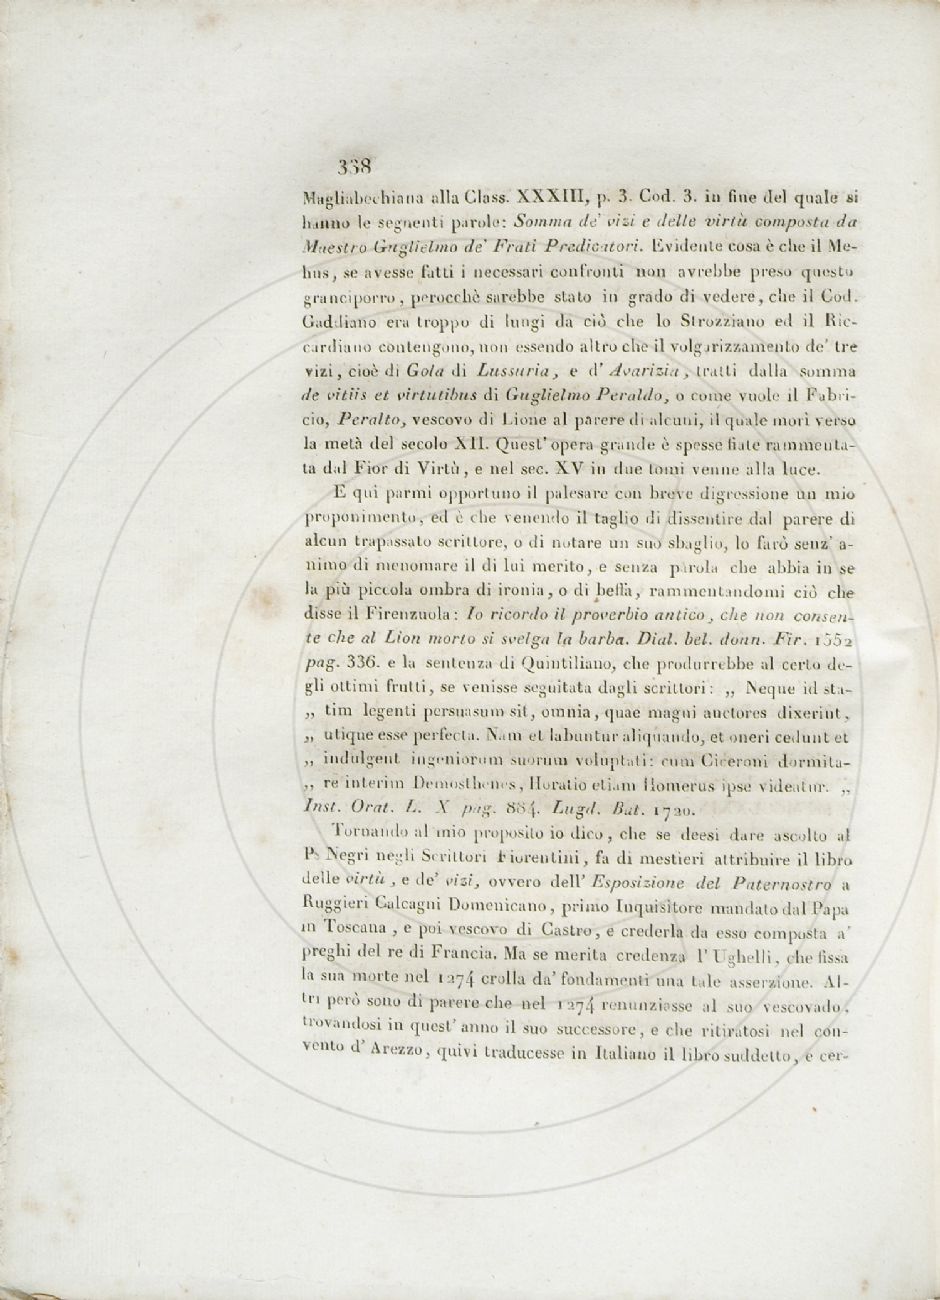 338
Magliabechiana alla Class. XXXIII, p. 3. Cod. 3. in fine del quale si
hanno le seguenti parole: Somma de' vizi e delle virtù composta da
Maestro Guglielmo de' Frati Predicatori. Evidente cosa è che il Me-
hus, se avesse fatti i necessari confronti non avrebbe preso questo
granciporro, perocchè sarebbe stato in grado di vedere, che il Cod.
Gaddiano era troppo di lungi da ciò che lo Strozziano ed il Ric-
cardiano contengono, non essendo altro che il volgarizzamento de' tre
vizi, cioè di Gola di Lussuria, e d' Avarizia, tratti dalla somma
de vitiis et virtutibus di Guglielmo Peraldo, o come vuole il Fabri-
cio, Peralto, vescovo di Lione al parere di alcuni, il quale morì verso
la metà del secolo XII. Quest' opera grande è spesse fiate rammenta-
ta dal Fior di Virtù, e nel sec. XV in due tomi venne alla luce.
E qui parmi opportuno il palesare con breve digressione un mio
proponimento, ed è che venendo il taglio di dissentire dal parere di
alcun trapassato scrittore, o di notare un suo sbaglio, lo farò senz' a-
nimo di menomare il di lui merito, e senza parola che abbia in se
la più piccola ombra di ironia, o di beffa, rammentandomi ciò che
disse il Firenzuola: Io ricordo il proverbio antico, che non consen-
te che al Lion morto si svelga la barba. Dial. bel. donn. Fir. 1552
pag. 336. e la sentenza di Quintiliano, che produrrebbe al certo de-
gli ottimi frutti, se venisse seguitata dagli scrittori: „ Neque id sta-
„ tim legenti persuasum sit, omnia, quae magni auctores dixerint,
„ utique esse perfecta. Nam et labuntur aliquando, et oneri cedunt et
„ indulgent ingeniorum suorum voluptati: cum Ciceroni dormita-
„ re interim Demosthenes, Horatio etiam Homerus ipse videatur. „
Inst. Orat. L. X pag. 884. Lugd. Bat. 1720.
Tornando al mio proposito io dico, che se deesi dare ascolto al
P. Negri negli Scrittori Fiorentini, fa di mestieri attribuire il libro
delle virtù, e de' vizi, ovvero dell' Esposizione del Paternostro a
Ruggieri Calcagni Domenicano, primo Inquisitore mandato dal Papa
in Toscana, e poi vescovo di Castro, e crederla da esso composta a'
preghi del re di Francia. Ma se merita credenza l' Ughelli, che fissa
la sua morte nel 1274 crolla da' fondamenti una tale asserzione. Al-
tri però sono di parere che nel 1274 renunziasse al suo vescovado,
trovandosi in quest' anno il suo successore, e che ritiratosi nel con-
vento d' Arezzo, quivi traducesse in Italiano il libro suddetto, e cer-